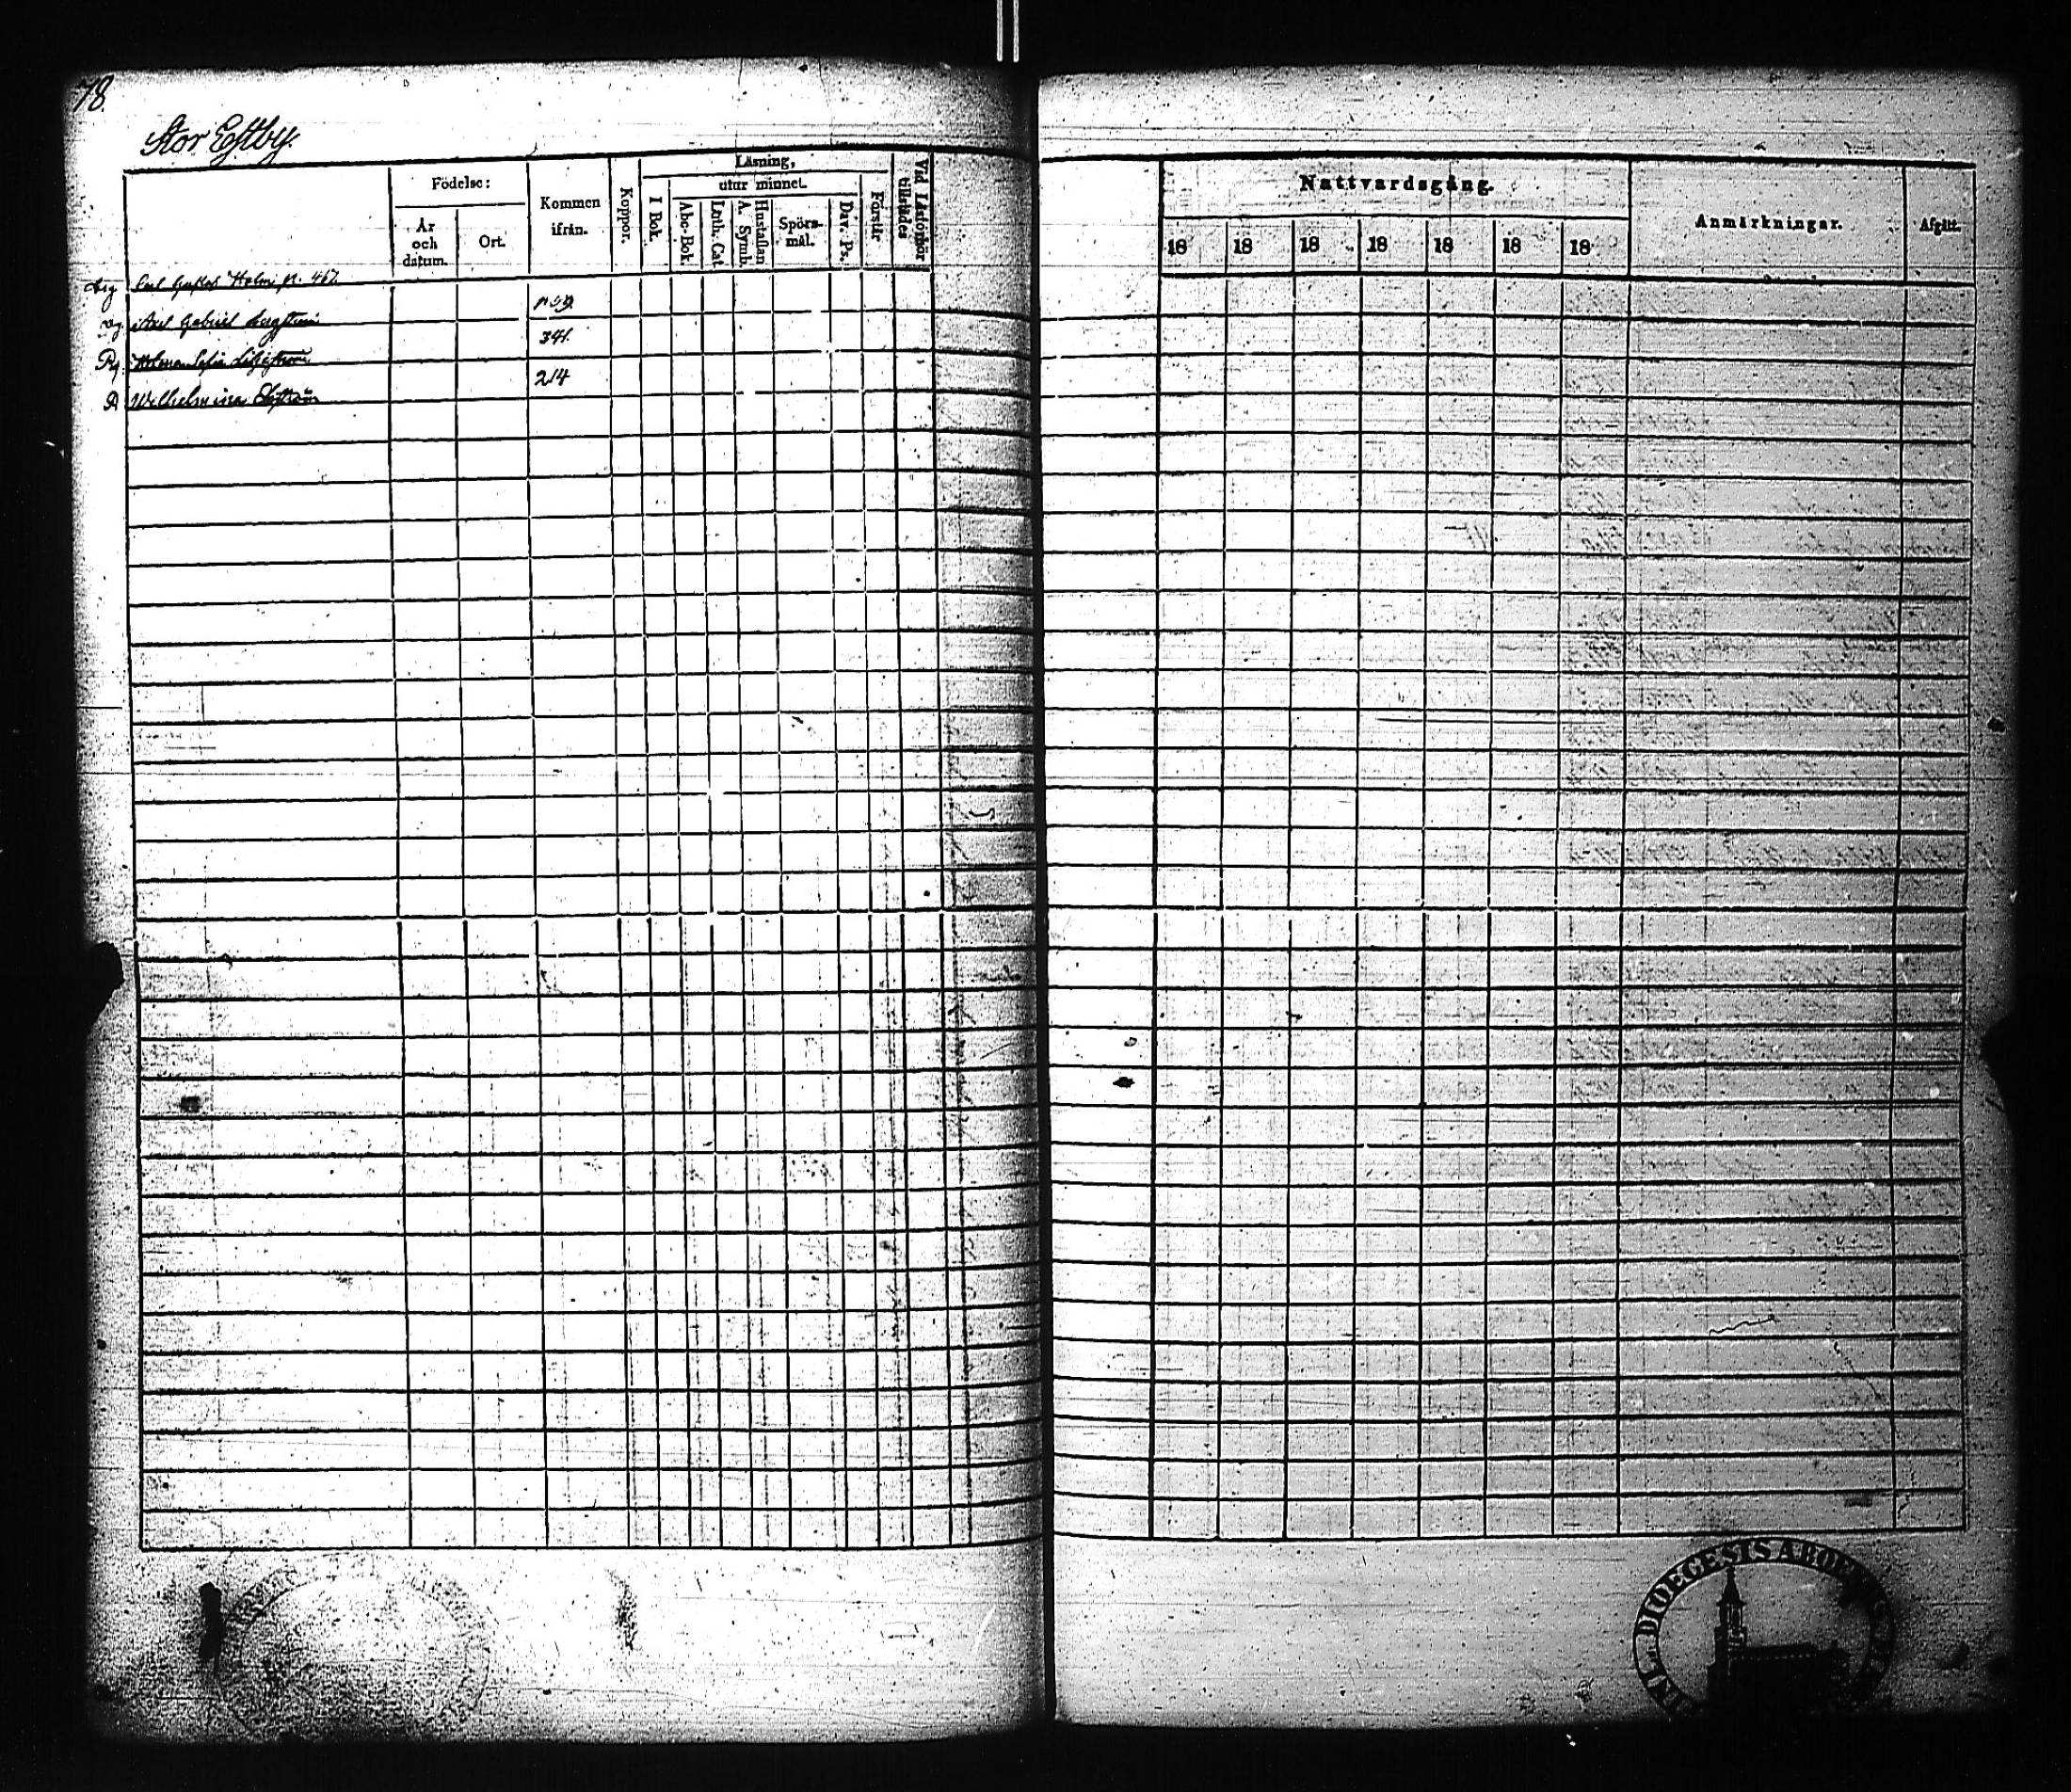 78.
Stor Estby.
Födelse:
År och datum.
Ort.
Kommen ifrån.
Koppor.
Läsning,
utur minnet.
I Bok.
Abc-Bok.
Luth. Cat.
A. Symb.
Hustaflan
Spörsmål.
Dav. Ps.
Förstår
Vid Läsförhör tillstädes
Nattvardsgång.
18 18 18 18 18 18 18
Anmärkningar.
Afgått.
Carl Gustaf Holm p. 467.
Axel Gabriel
341.
Sofia
214
Wilhelmina
DIOECESIS ABOENSIS